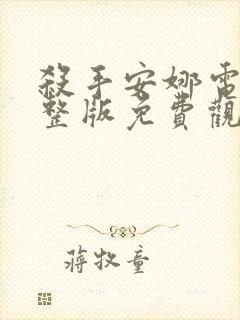 殺手安娜電
整版免費觀
蔣牧童